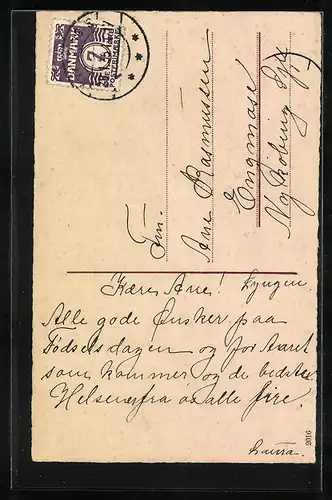 DANMARK
7
Frk.
Ane Rasmussen
Engmose
Nykøbing Sj.
Kære Ane! Lyngen.
Alle gode Ønsker paa
Fødselsdagen og for Aaret
som kommer og de bedste
Helsener fra os alle fire.
Laura.
2016